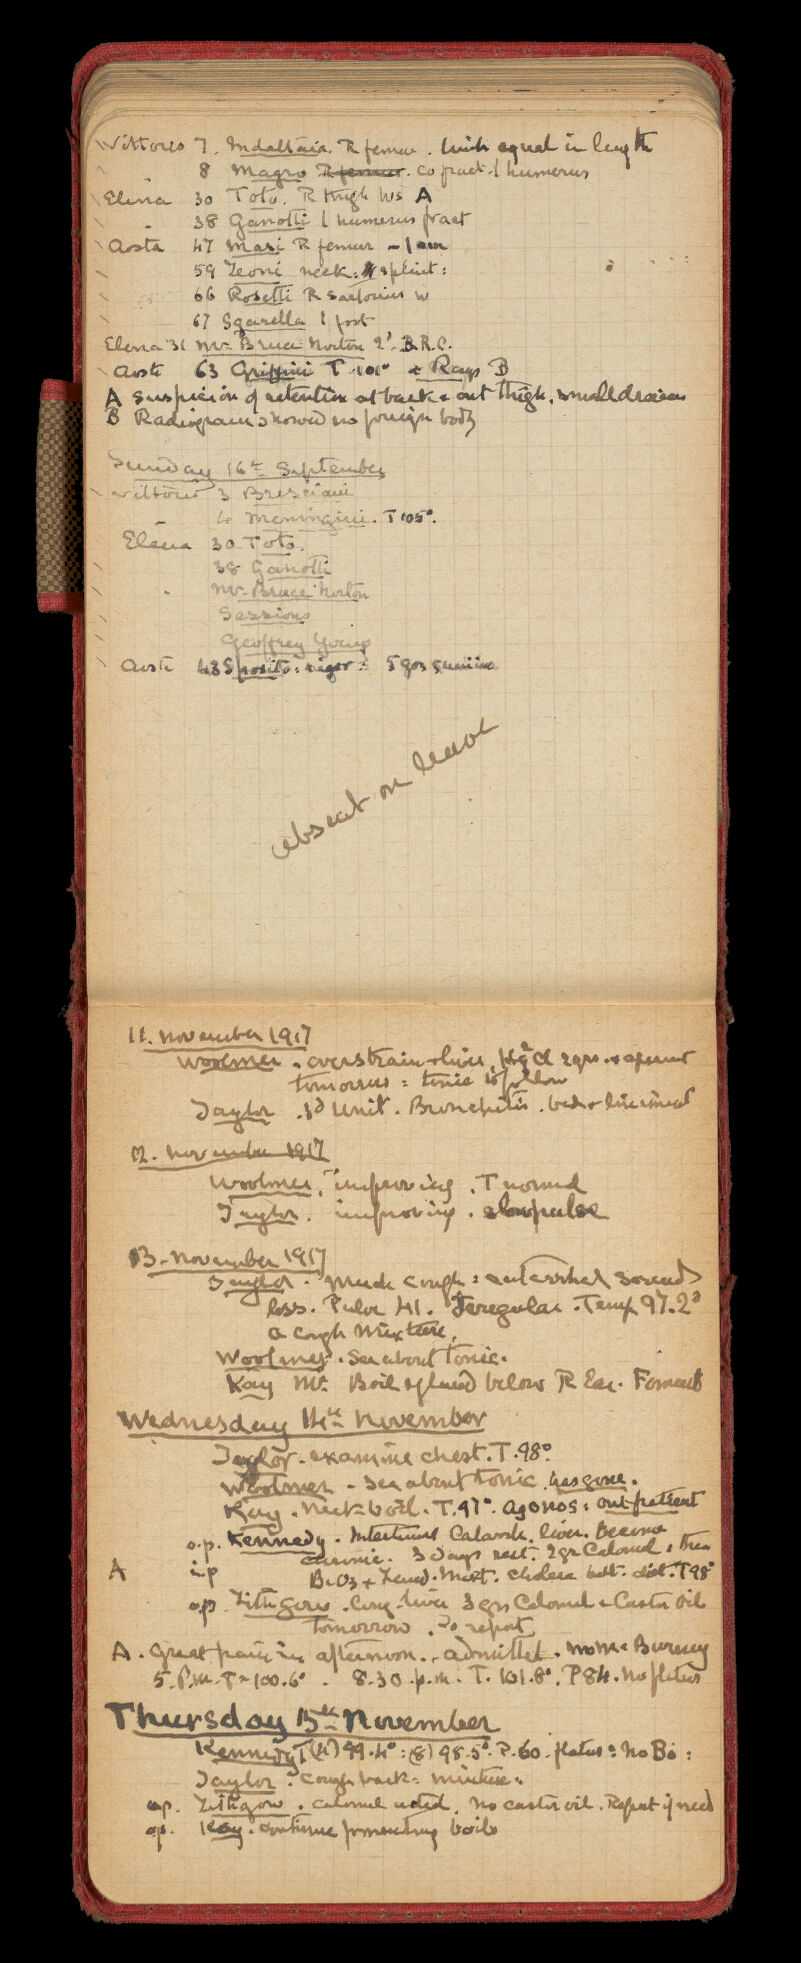 Vittorio 7. Indaltaia. R femur. limb equal in length
8 Magro R femur. Co fract. l humerus
Elena 30 Toto. R thigh ws A
38 Ganotti l humerus fract
Aosta 47 Masi R femur - 1 cm
59 Zeoni neck: splint:
66 Rosetti R sartorius w
67 Sgarella l foot
Elena 31 Mr Bruce Norton 2' B.R.C.
Aosta 63 Griffini T. 101° + Rays B
A Suspicion of retention at back & out thigh. small drains
B Radiogram showed no foreign body
Sunday 16th September
Vittorio 3 Bresciani
4 Meningini. T 105°.
Elena 30 Toto.
38 Ganotti
Mr Bruce Norton
Sessions
Geoffrey Young
Aosta 43 Sposito: rigor: 5 grs quinine
absent on leave
11. November 1917
Woolmer. overstrain & liver. 2 grs. & aperient
tomorrow = tonic to follow
Taylor. 3d Unit. Bronchitis. bed & liniment
12. November 1917
Woolmer. improving. T normal
Taylor. improving. slow pulse
13. November 1917
Taylor. Much cough: sounds
less. Pulse 41. Irregular. Temp 97.2°
a cough mixture.
Woolmer. See about tonic.
Kay Mr. Boil gland below R Ear. Foment
Wednesday 14th November
Taylor. examine chest. T. 98°.
Woolmer. See about tonic. has gone.
Kay. Neck boil. T. 97°. agonos: outpatient
o.p. Kennedy. Intestinal Catarrh. liver. become
A i.p chronic. 3 days rest. 2 gr Calomel: then
Mist. cholera bott. diet. T 98°
o.p. Lithgow. Cong. liver 3 grs Calomel & Castor oil
tomorrow. To report
A. Great pain in afternoon. admitted. no McBurney
5. P.m. T = 100.6°. 8.30 p.m. T. 101.8°. P 84. no flatus
Thursday 15th November
Kennedy T (4) 99.4°: (8) 98.5°. P. 60. flatus: No Bo:
Taylor. Cough back: mixture.
op. Lithgow. calomel acted. no castor oil. Repeat if need
op. Kay. continue fomenting boils